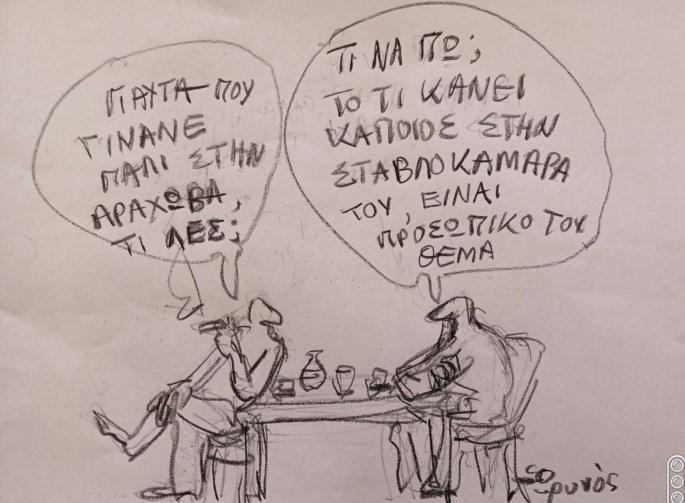 ΓΙΑΥΤΑ ΠΟΥ
ΓΙΝΑΝΕ
ΠΑΛΙ ΣΤΗΝ
ΑΡΑΧΩΒΑ,
ΤΙ ΛΕΣ;
ΤΙ ΝΑ ΠΩ;
ΤΟ ΤΙ ΚΑΝΕΙ
ΚΑΠΟΙΟΣ ΣΤΗΝ
ΣΤΑΒΛΟΚΑΜΑΡΑ
ΤΟΥ, ΕΙΝΑΙ
ΠΡΟΣΩΠΙΚΟ ΤΟΥ
ΘΕΜΑ